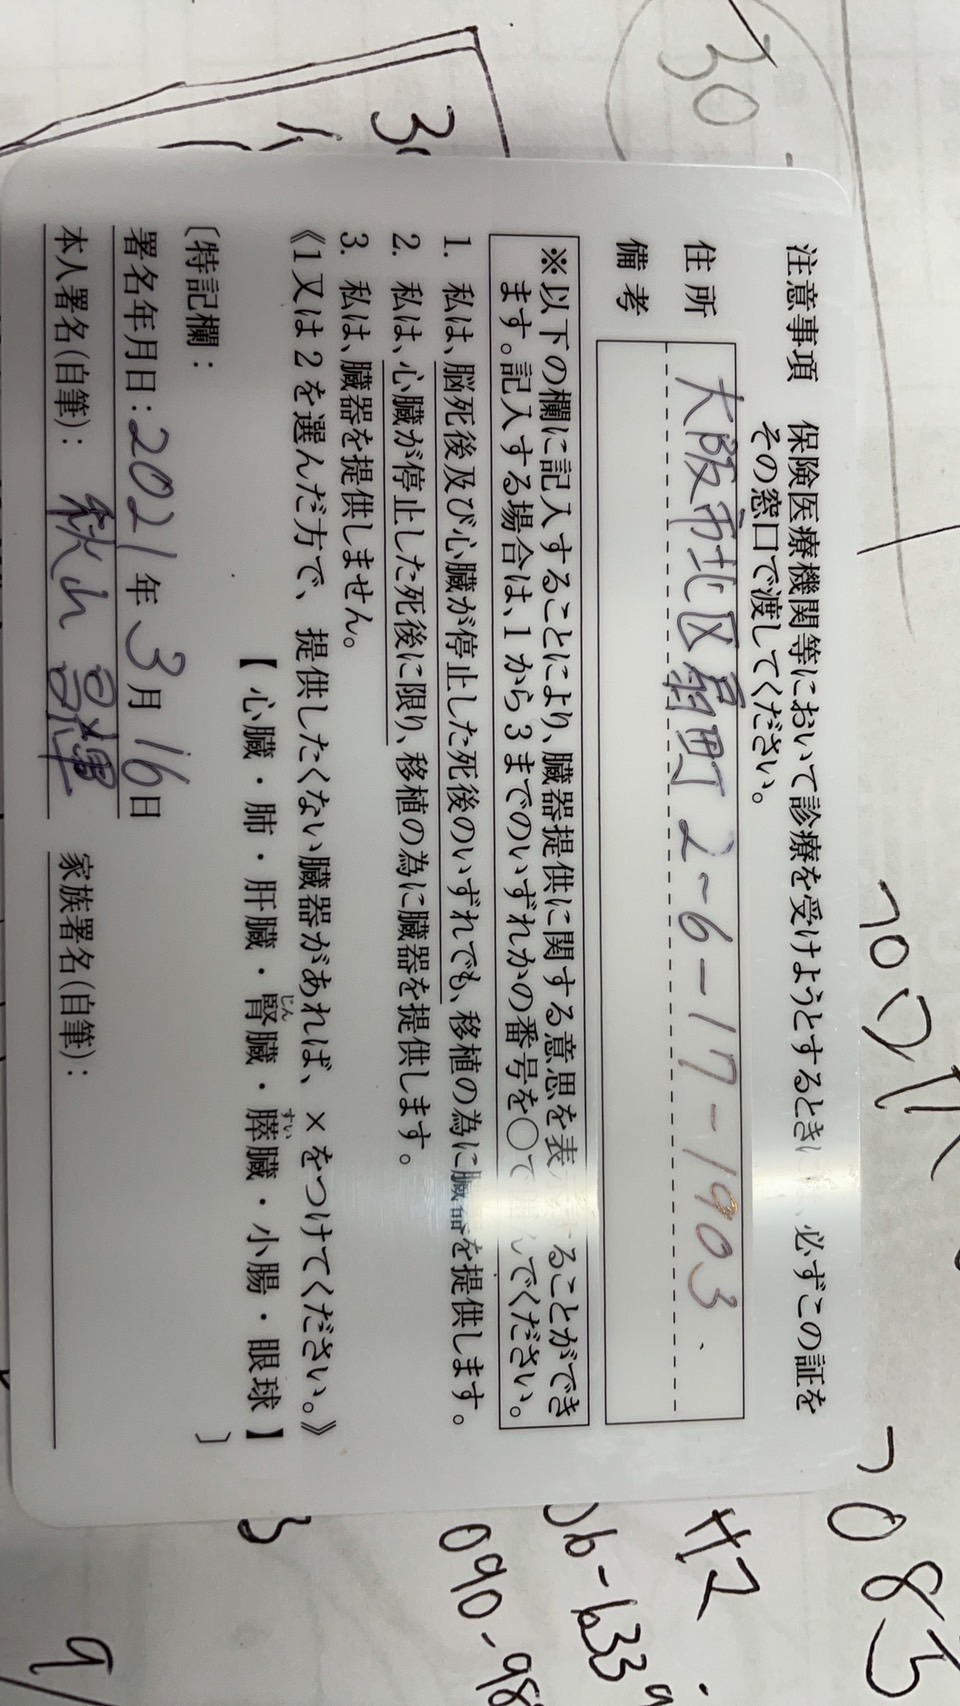 注意事項　保険医療機関等において診療を受けようとするときに、必ずこの証を
その窓口で渡してください。
住所　大阪市北区扇町2-6-17-1903
備考
※以下の欄に記入することにより、臓器提供に関する意思を表することができ
ます。記入する場合は、1から3までのいずれかの番号を〇で んでください。
1. 私は、脳死後及び心臓が停止した死後のいずれでも、移植の為に臓器を提供します。
2. 私は、心臓が停止した死後に限り、移植の為に臓器を提供します。
3. 私は、臓器を提供しません。
《1又は2を選んだ方で、提供したくない臓器があれば、×をつけてください。》
じん　すい
【心臓・肺・肝臓・腎臓・膵臓・小腸・眼球】
〔特記欄：　〕
署名年月日：2021年3月16日
本人署名(自筆)：秋山　家族署名(自筆)：
30
30
3
090-98
サス
083
9